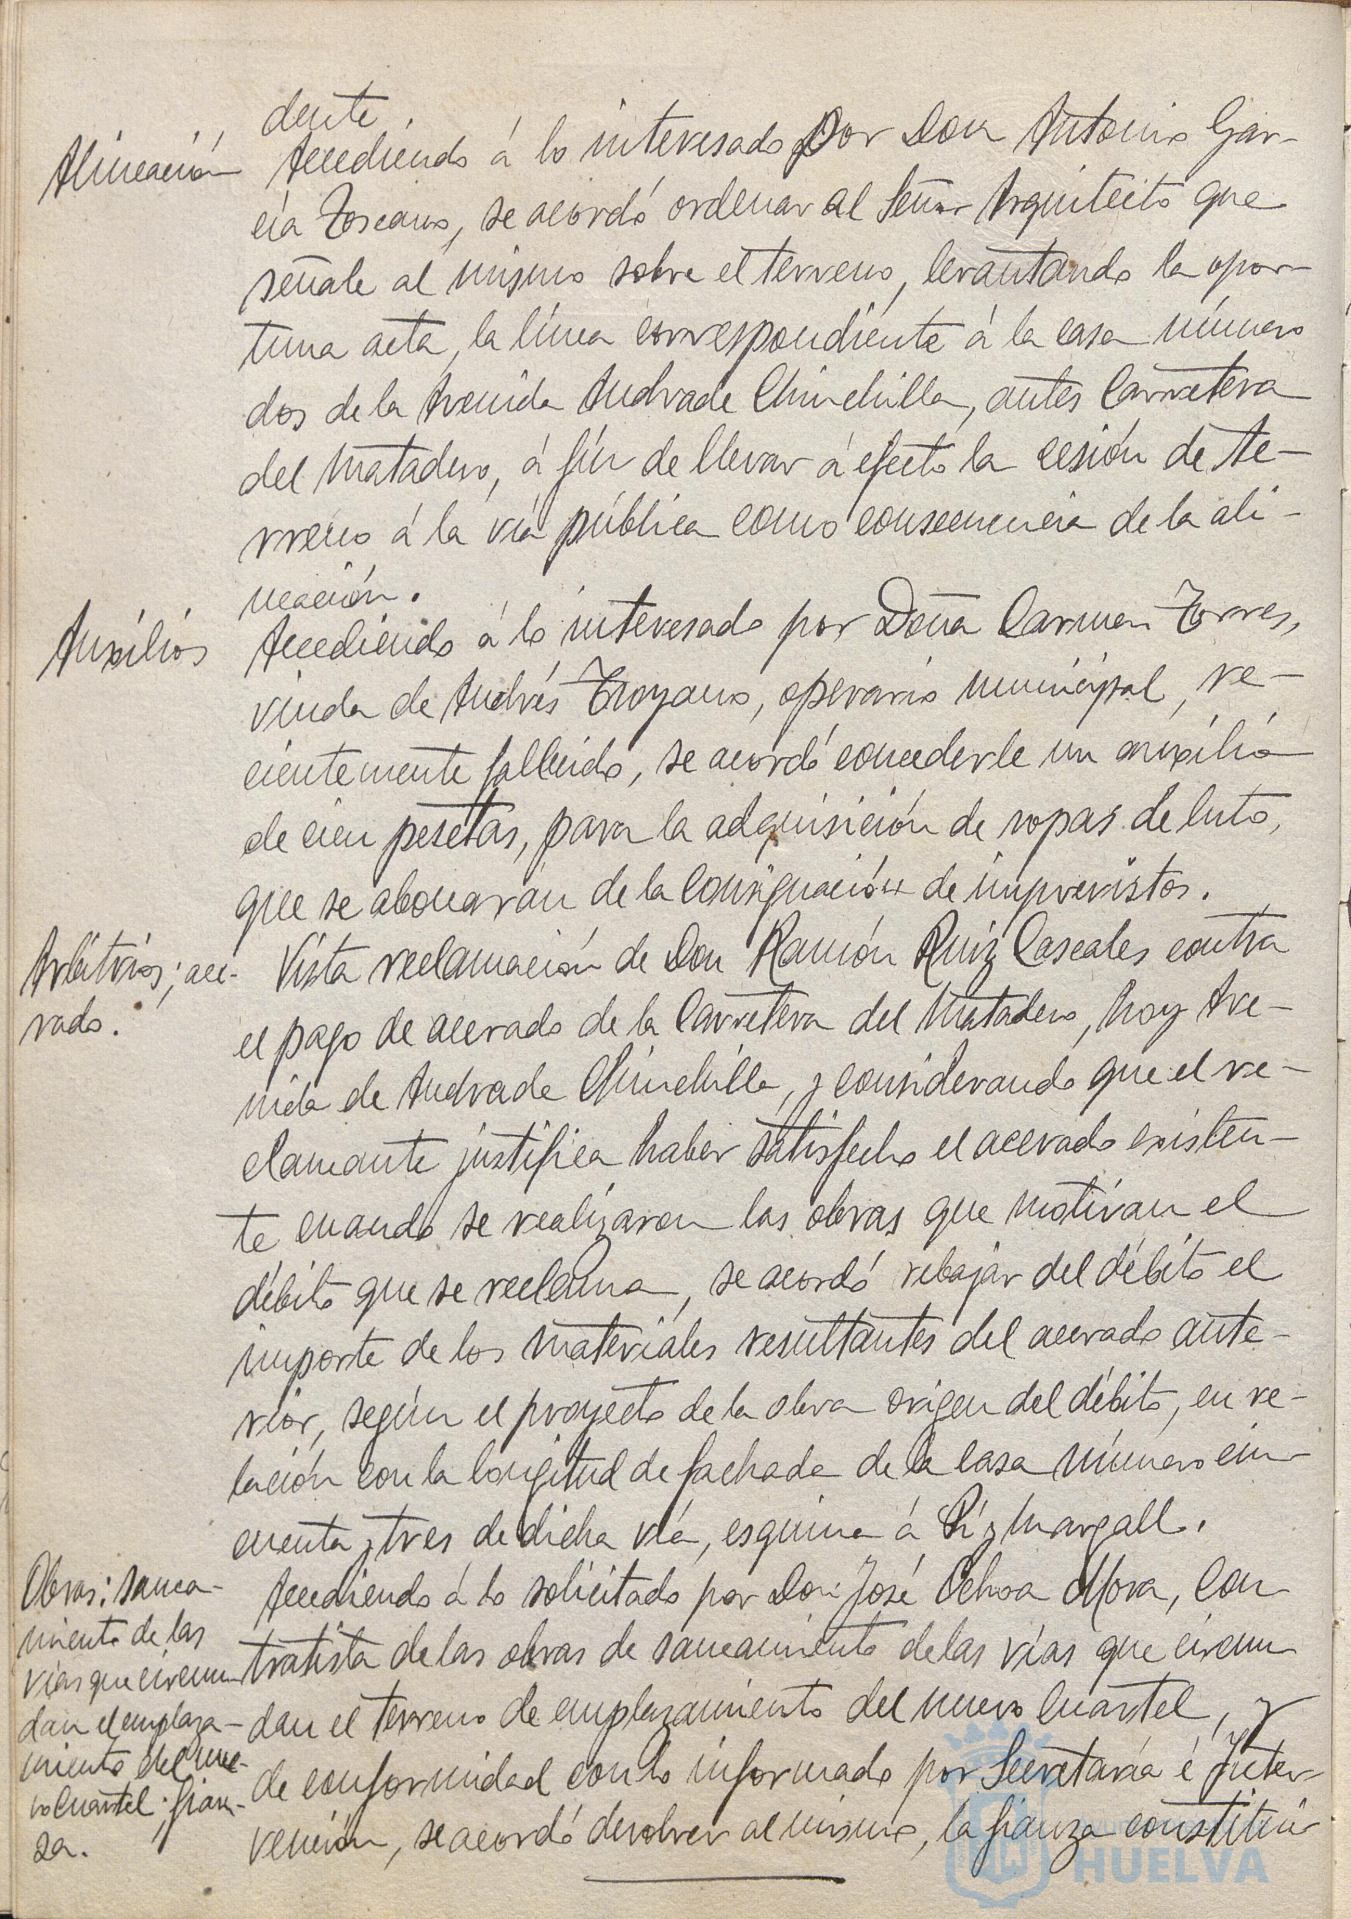 dente.
Alineación
Accediendo á lo interesado por Don Antonio Gar-
cía Toscano, se acordó ordenar al Señor Arquitecto que
señale al mismo sobre el terreno, levantando la opor-
tuna acta, la línea correspondiente á la casa número
dos de la Avenida Andrade Chinchilla, antes Carretera
del Matadero, á fin de llevar á efecto la cesión de te-
rreno á la vía pública como consecuencia de la ali-
neación.
Auxilios
Accediendo á lo interesado por Doña Carmen Torres,
viuda de Andrés Troyano, operario municipal, re-
cientemente fallecido, se acordó concederle un auxilio
de cien pesetas, para la adquisición de ropas de luto,
que se abonarán de la consignación de imprevistos.
Arbitrios; ace-
rado.
Vista reclamación de Don Ramón Ruiz Cascales contra
el pago de acerado de la Carretera del Matadero, hoy Ave-
nida de Andrade Chinchilla, y considerando que el re-
clamante justifica haber satisfecho el acerado existen-
te cuando se realizaron las obras que motivan el
débito que se reclama, se acordó rebajar del débito el
importe de los materiales resultantes del acerado ante-
rior, según el proyecto de la obra origen del débito, en re-
lación con la longitud de fachada de la casa número cin-
cuenta y tres de dicha vía, esquina á Pí y Margall.
Obras: sanea-
miento de las
vías que circun-
dan el emplaza-
miento del nue-
vo Cuartel; fian-
za.
Accediendo á lo solicitado por Don José Ochoa Mora, Con-
tratista de las obras de saneamiento de las vías que circun-
dan el terreno de emplazamiento del nuevo Cuartel, y
de conformidad con lo informado por Secretaría é Inter-
vención, se acordó devolver al mismo, la fianza constituí-
HUELVA